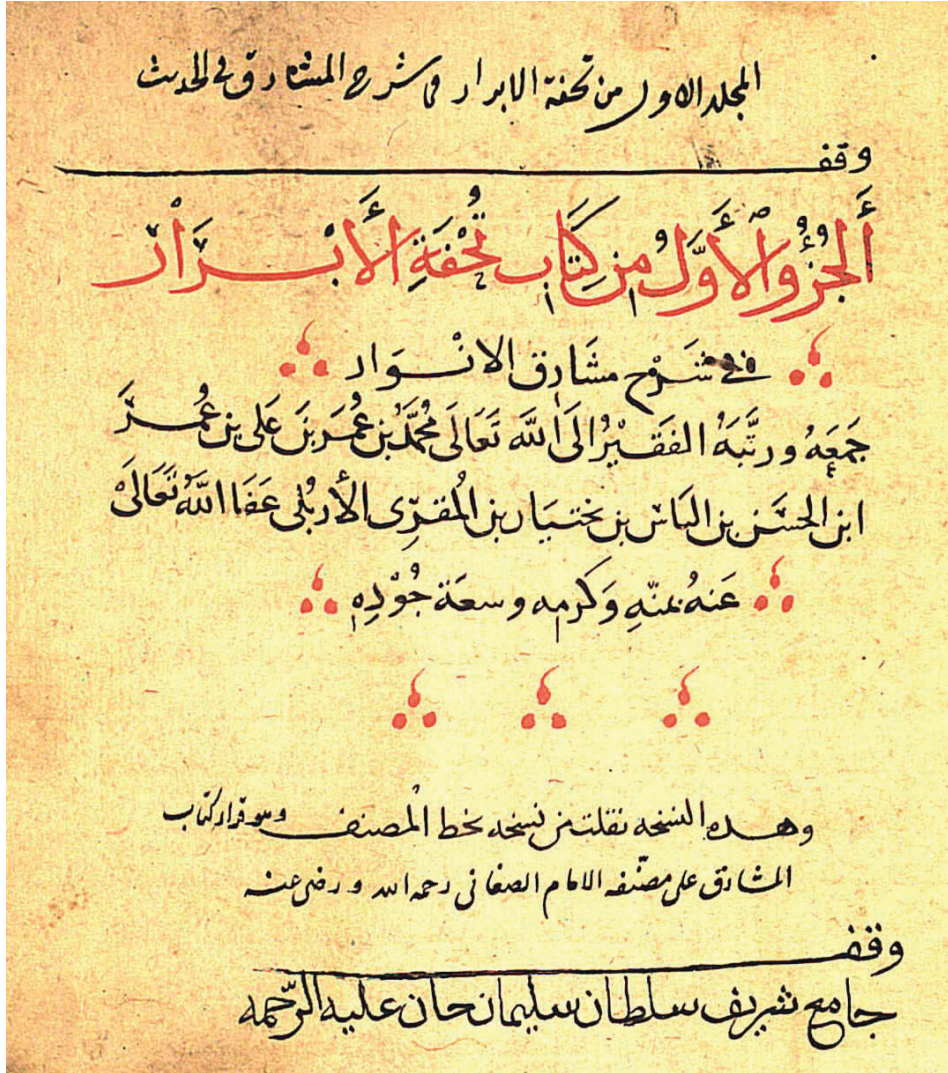 المجلد الاول من تحفة الابرار في شرح المشارق في الحديث
وقف
أَلْجُزْؤُ الْأَوَّلُ مِن كِتَابِ تُحْفَةِ الْأَبْرَارْ
في شَرْح مشَارق الانْوار
جَمَعَهُ ورتَّبَهُ الفَقيْرُ الَى اللَّه تَعَالَى مُحمَّدُ بْن عُمَرَ بنَ عَلى بن عُمَرَ
ابن الحسَن بن الياس بن بختيَار بن المُقرِّى الأربلى عَفَا اللَّهُ تعَالَىْ
عَنهُ بمنّهِ وَكرمِه وسعَة جُوْدِهِ
وهذه النسخه نقلت من نسخه بخط المصنف وهو قراء كتاب
المشارق على مصنّفه الامام الصغانى رحمه الله ورضى عنه
وقف
جامع شريف سلطان سليمان خان عليه الرّحمه